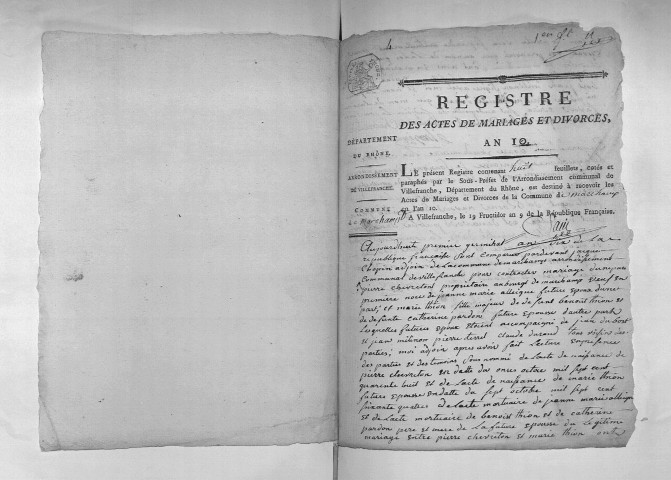 4
1er ft
REGISTRE
DES ACTES DE MARIAGES ET DIVORCES,
AN 10.
DÉPARTEMENT
DU RHÔNE.
ARRONDISSEMENT
DE VILLEFRANCHE.
COMMUNE
de marchampt
LE présent Registre contenant huit feuillets, cotés et
paraphés par le Sous-Préfet de l'Arrondissement communal de
Villefranche, Département du Rhône, est destiné à recevoir les
Actes de Mariages et Divorces de la Commune de marchamp
en l'an 10.
A Villefranche, le 19 Fructidor an 9 de la République Française.
Aujourdhuit premier germinal an dix de la
republique francaise sont comparus pardevant
Chopin adjoin de la commune de marchamp arrondissement
Communal de villefranche pour contracter mariage
pierre chevreton propriétaire au bourg de marchamp veuf en
premiere noces de jeanne marie future epoux d'une
part, et marie thion fille majeur de defunt benoit thion et
de defunte catherine pardon future epouse d'autre part
Lesquelles futures epoux etoient accompagné de jean
et jean pierre terrel claude durand tous
parties; moi adjoin apres avoir fait lecture en presence
des parties et des temoins de lacte de naissance de
pierre chevreton en datte du onze octobre mil sept cent
quarente huit et de lacte de naissance de marie thion
future epouse en datte du sept octobre mil sept cent
soixante quatre de lacte mortuaire de jeanne marie
et de lacte mortuaire de benoit thion et de catherine
pardon pere et mere de la future epouse du legitime
mariage entre pierre chevreton et marie thion